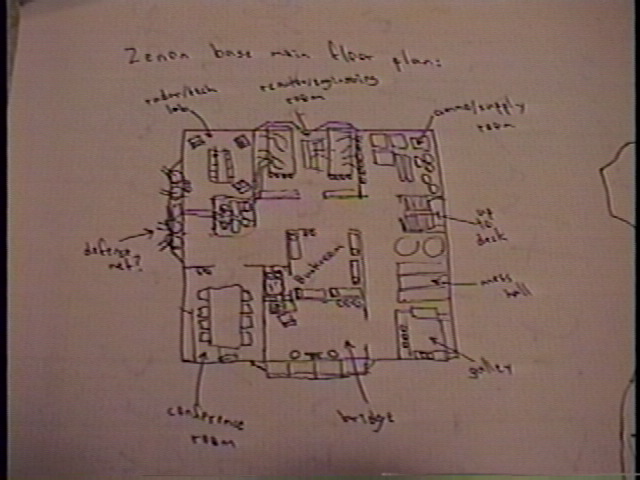 Zenon base main floor plan:
radar/tech
lab
reactor/engineering
room
ammo/supply
room
up
to
deck
defense
net?
Backroom
mess
hall
galley
conference
room
bridge